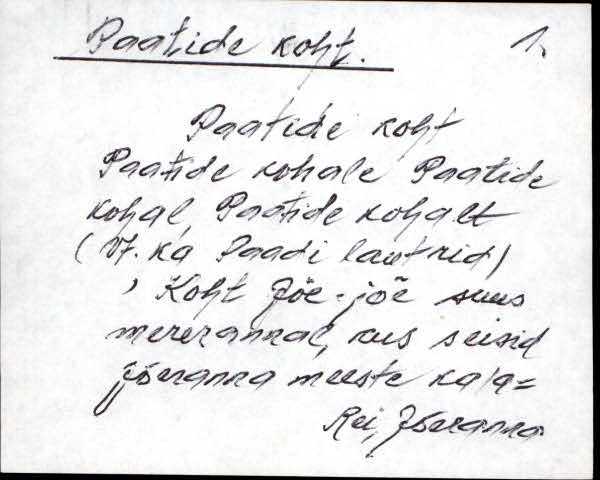 Paatide koht. 1.
Paatide koht
Paatide kohale Paatide
kohal, Paatide kohalt
(Vt. ka Paadi lautrid)
, Koht Jõe-jõe suus
mererannal, kus seisid
jõeranna meeste kala=
Rei, Jõeranna